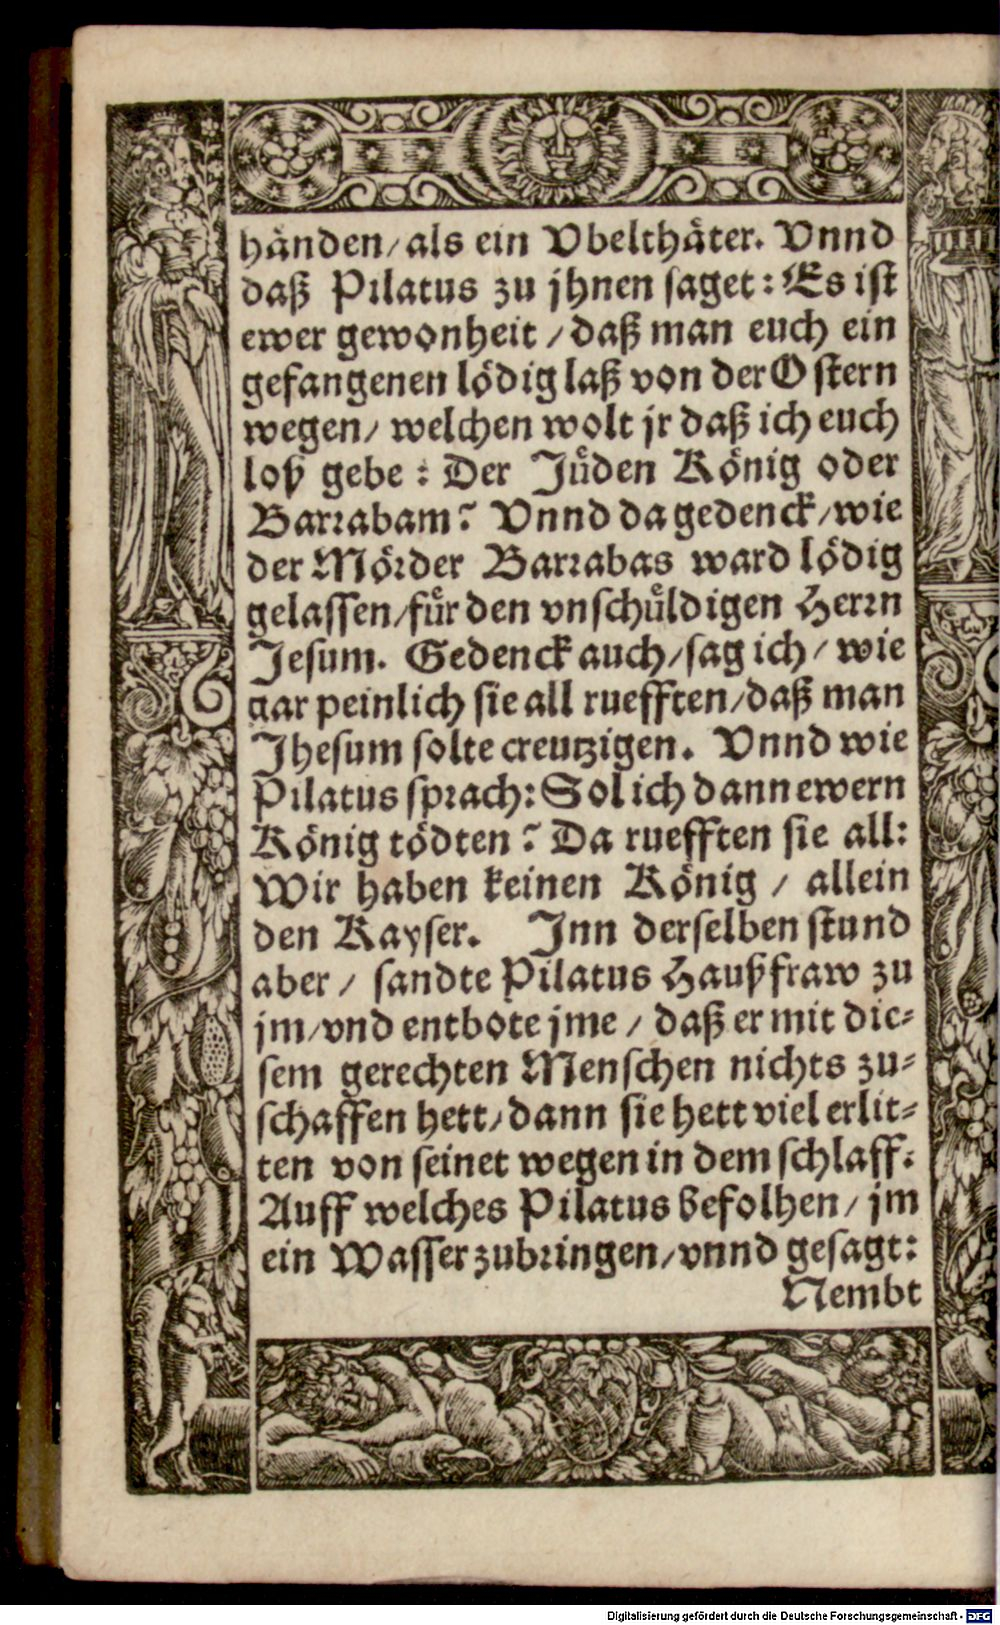 händen/ als ein Vbelthäter. Vnnd
daß Pilatus zu jhnen saget: Es ist
ewer gewonheit / daß man euch ein
gefangenen lödig laß von der Ostern
wegen/ welchen wolt jr daß ich euch
loß gebe: Der Jüden König oder
Barrabam? Vnnd da gedenck/ wie
der Mörder Barrabas ward lödig
gelassen/ für den vnschüldigen Herrn
Jesum. Gedenck auch/ sag ich/ wie
gar peinlich sie all ruefften/ daß man
Jhesum solte creutzigen. Vnnd wie
Pilatus sprach: Sol ich dann ewern
König tödten? Da ruefften sie all:
Wir haben keinen König / allein
den Kayser. Jnn derselben stund
aber/ sandte Pilatus Haußfraw zu
jm/ vnd entbote jme / daß er mit die-
sem gerechten Menschen nichts zu-
schaffen hett/ dann sie hett viel erlit-
ten von seinet wegen in dem schlaff:
Auff welches Pilatus befolhen/ jm
ein Wasser zubringen/ vnnd gesagt:
Nembt
Digitalisierung gefördert durch die Deutsche Forschungsgemeinschaft - DFG